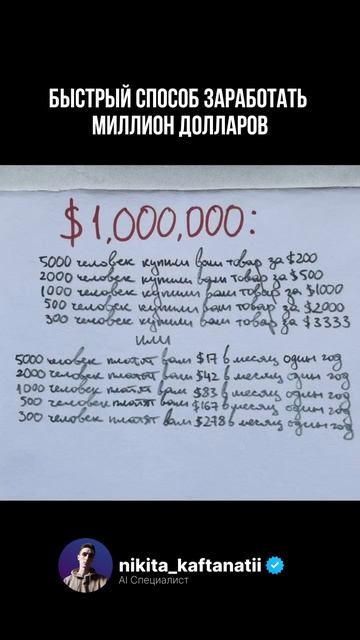 БЫСТРЫЙ СПОСОБ ЗАРАБОТАТЬ
МИЛЛИОН ДОЛЛАРОВ
$1,000,000:
5000 человек купили ваш товар за $200
2000 человек купили ваш товар за $500
1000 человек купили ваш товар за $1000
500 человек купили ваш товар за $2000
300 человек купили ваш товар за $3333
или
5000 человек платят вам $17 в месяц один год
2000 человек платят вам $42 в месяц один год
1000 человек платят вам $83 в месяц один год
500 человек платят вам $167 в месяц один год
300 человек платят вам $278 в месяц один год
nikita_kaftanatii
AI Специалист